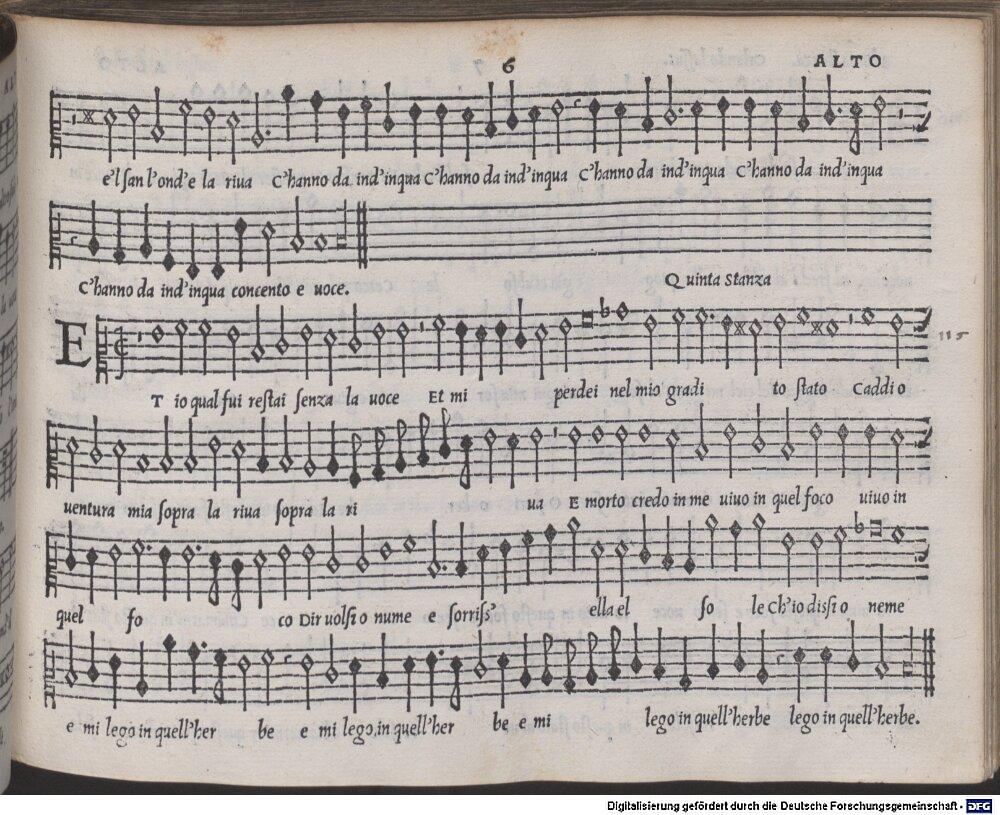 6 ALTO
e'l san l'ond'e la riua C'hanno da ind'inqua C'hanno da ind'inqua C'hanno da ind'inqua C'hanno da ind'inqua
C'hanno da ind'inqua concento e uoce.
Quinta Stanza
E T io qual fui restai senza la uoce Et mi perdei nel mio gradi to stato Caddi o
115
uentura mia sopra la riua sopra la ri ua E morto credo in me uiuo in quel foco uiuo in
quel fo co Dir uolsi o nume e sorriss' ella el so le Ch'io dissi o neme
e mi lego in quell'her be e mi lego in quell'her be e mi lego in quell'herbe lego in quell'herbe.
Digitalisierung gefördert durch die Deutsche Forschungsgemeinschaft - DFG